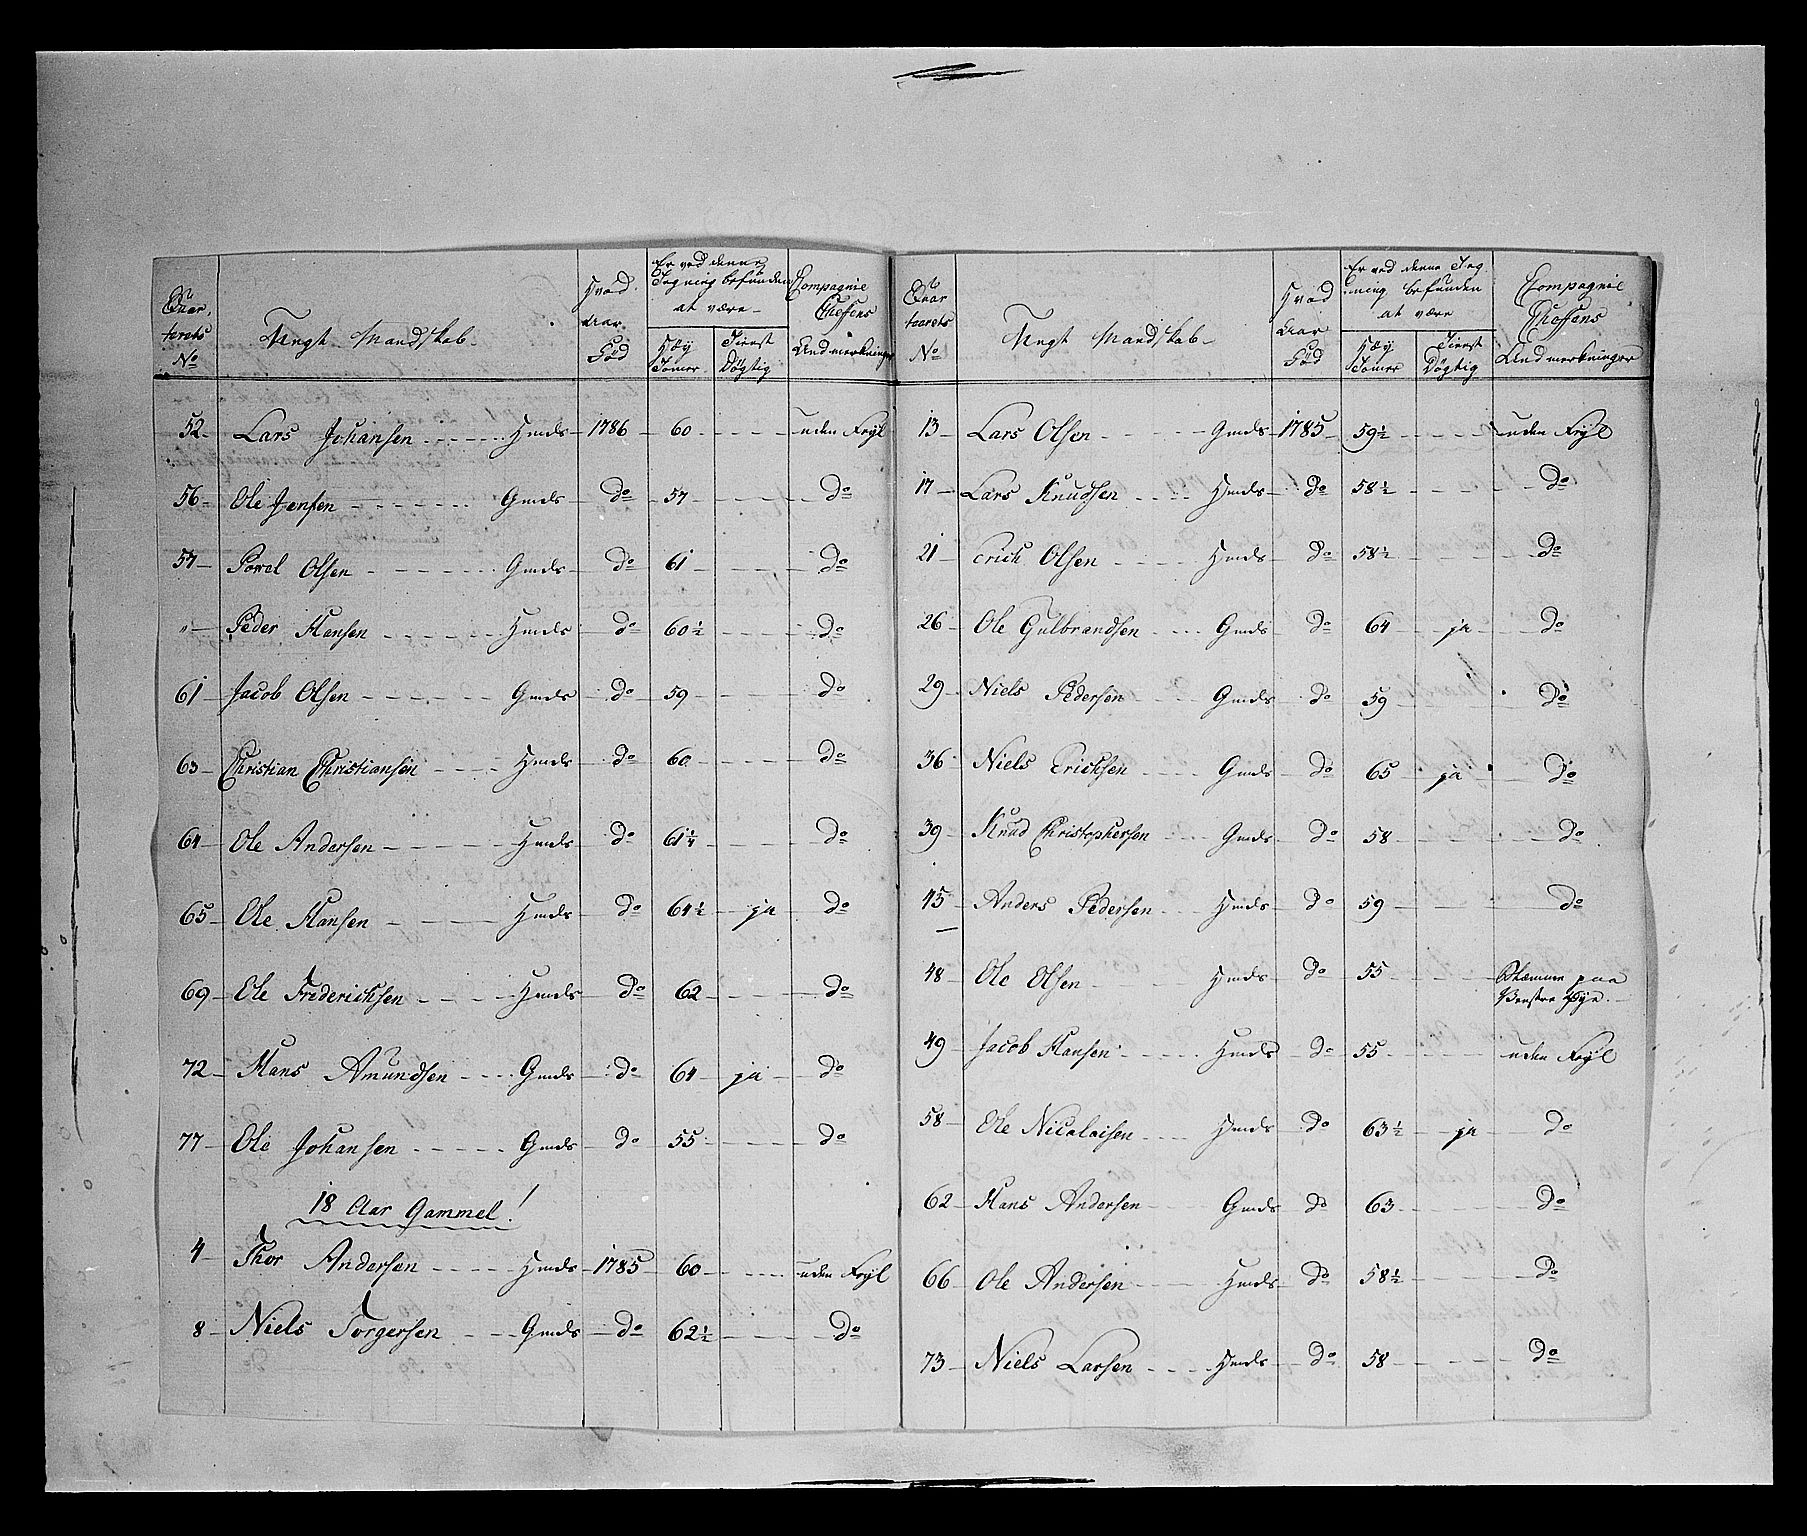 Quar-
terets
No
Ungt Mandskab
Hvad
Aar
Fød
Er ved denne
Tegning befunden
at være
Høy
Tomer
Tienst
Dögtig
Compagnie
Cheffens
Andmerkninger
52 Lars Johansen Hmds 1786 60 uden Feyl
56 Ole Jensen Gmds Do 57 Do
57 Powel Olsen Gmds Do 61 Do
" Peder Hansen Hmds Do 60½ Do
61 Jacob Olsen Gmds Do 59 Do
63 Christian Christiansen Hmds Do 60 Do
64 Ole Andersen Hmds Do 61¼ Do
65 Ole Hansen Hmds Do 64½ ja Do
69 Ole Frederichsen Hmds Do 62 Do
72 Hans Amundsen Gmds Do 64 ja Do
77 Ole Johansen Gmds Do 55 Do
18 Aar Gammel!
4 Thor Andersen Hmds 1785 60 uden Feyl
8 Niels Torgersen Gmds Do 62½ Do
Quar
teerets
No
Ungt Mandskab
Hvad
Aar
Fød
Er ved denne Teg
ning befunden
at være
Høy
Tomer
Tienst
Dögtig
Compagnie
Cheffens
Andmerkninger
13 Lars Olsen Gmds 1785 59½ uden Feyl
17 Lars Knudsen Hmds Do 58½ Do
21 Erich Olsen Hmds Do 58½ Do
26 Ole Gulbrandsen Gmds Do 64 ja Do
29 Niels Pedersen Gmds Do 59 Do
36 Niels Erichsen Gmds Do 65 ja Do
39 Knud Christophersen Gmds Do 58 Do
45 Anders Pedersen Hmds Do 59 Do
48 Ole Olsen Hmds Do 55 Skæmme paa
Venstre Øye
49 Jacob Hansen Hmds Do 55 uden Feyl
58 Ole Nicolaisen Hmds Do 63½ ja Do
62 Hans Andersen Gmds Do 63 Do
66 Ole Andersen Hmds Do 58½ Do
73 Niels Larsen Hmds Do 58 Do